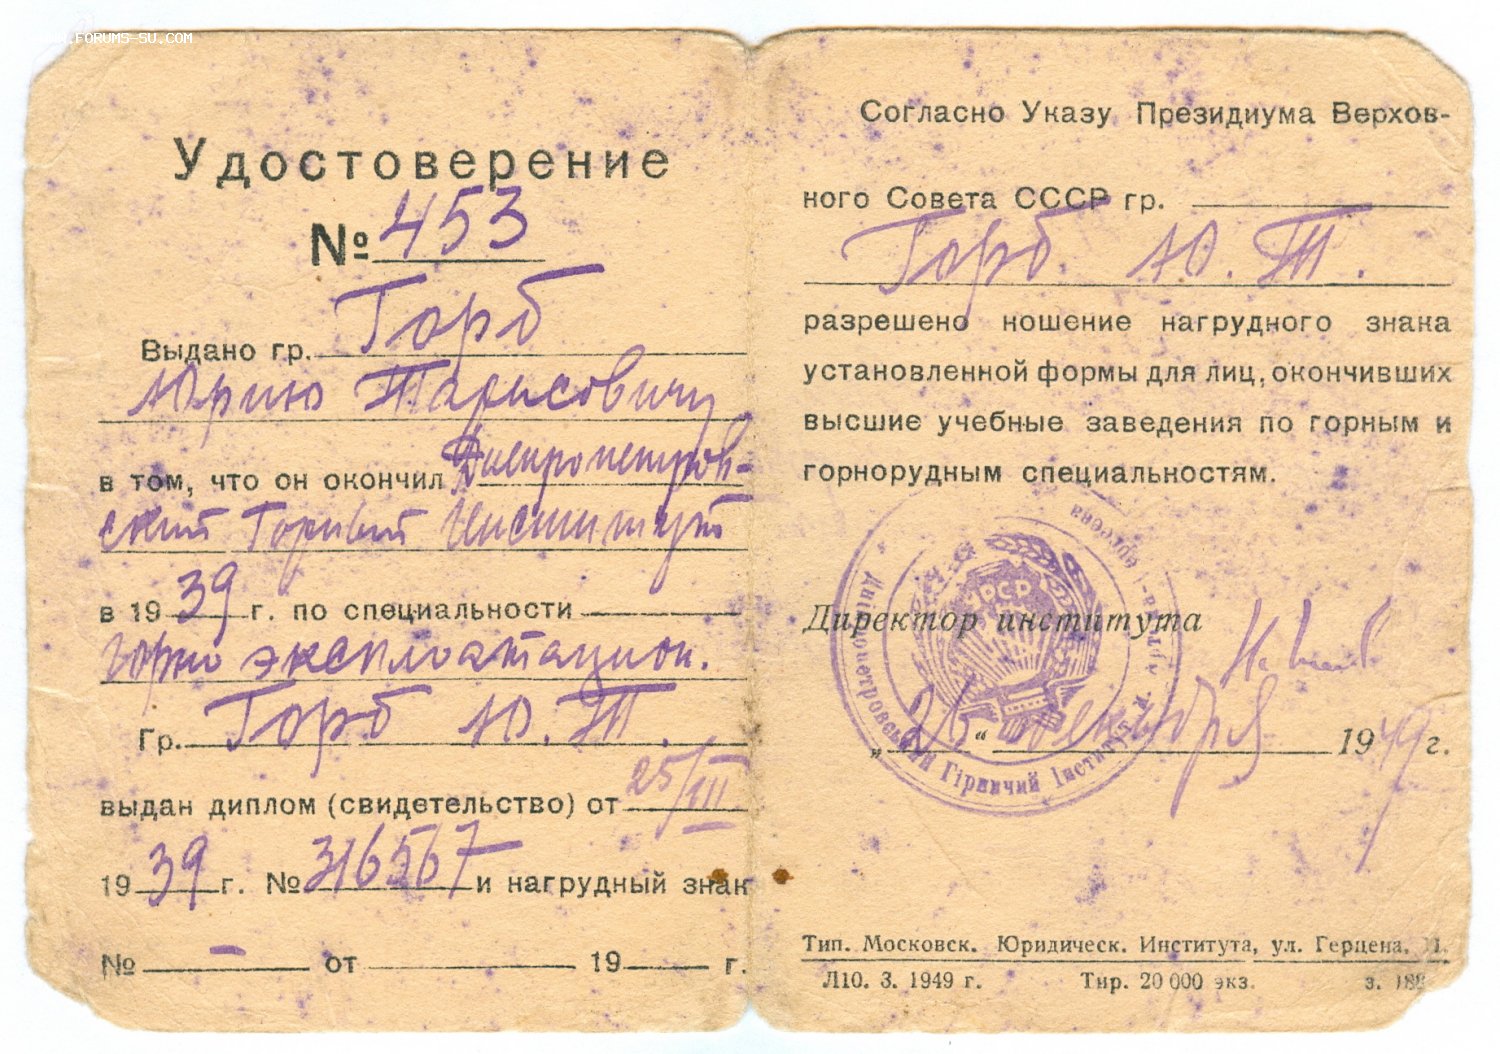 WWW.FORUMS-SU.COM
Удостоверение
№ 453
Горб
Выдано гр.
Юрию Тарасовичу
в том, что он окончил Днепропетров-
ский Горный Институт
в 1939 г. по специальности
горно эксплоатацион.
Гр. Горб Ю. Т.
выдан диплом (свидетельство) от 25/III
1939 г. № 316567 и нагрудный знак
№ — от 19 г.
Согласно Указу Президиума Верхов-
ного Совета СССР гр.
Горб Ю. Т.
разрешено ношение нагрудного знака
установленной формы для лиц, окончивших
высшие учебные заведения по горным и
горнорудным специальностям.
УРСР
Дніпропетровський Гірничий Інститут
Директор института
„26“ декабря 1949 г.
Тип. Московск. Юридическ. Института, ул. Герцена,
Л10. 3. 1949 г. Тир. 20 000 экз.